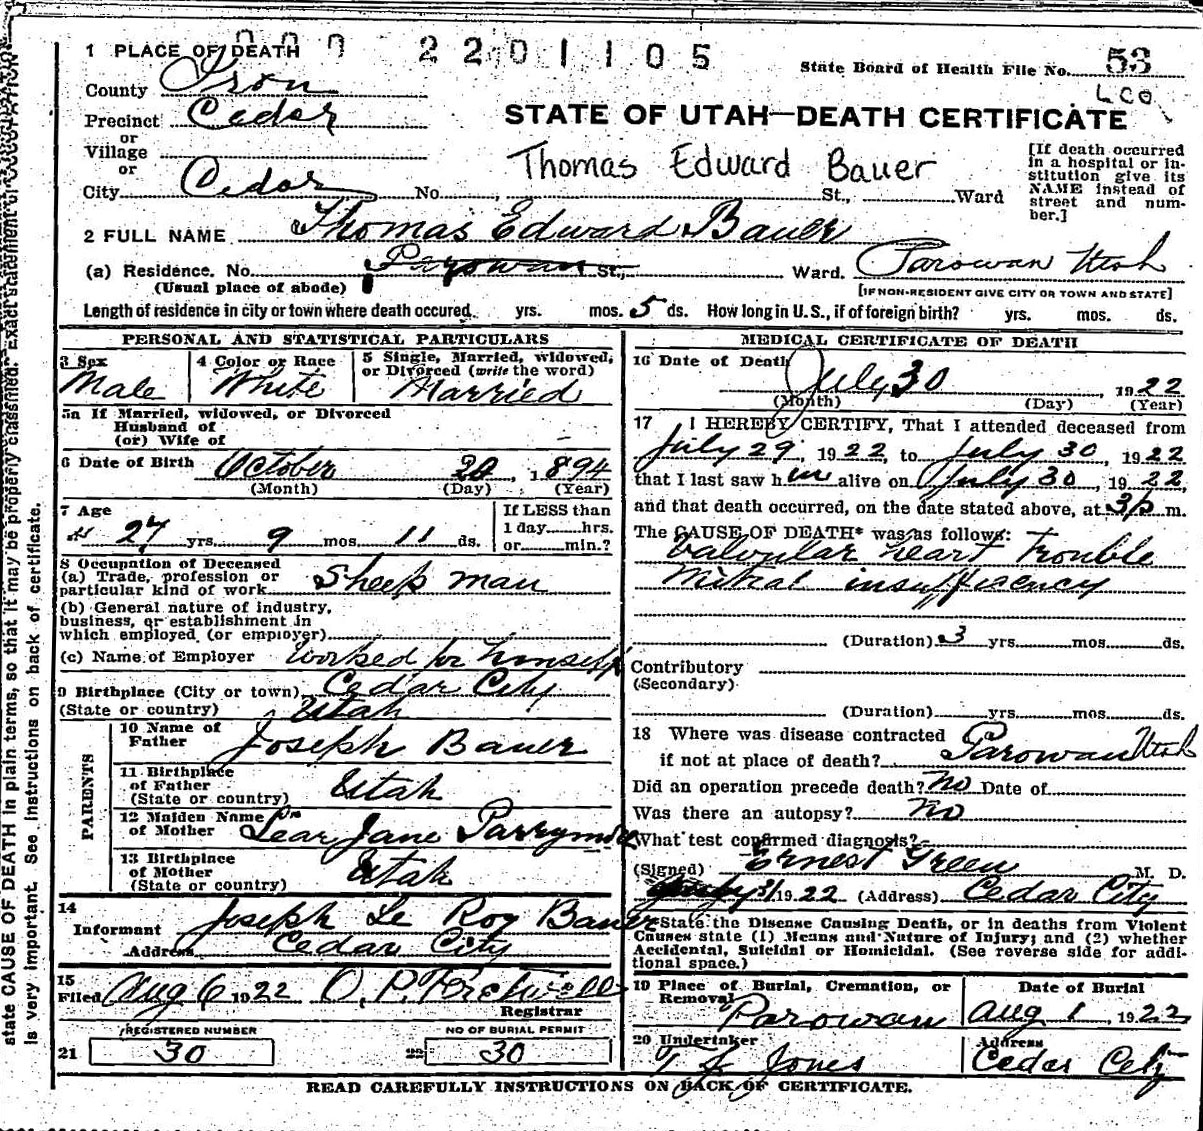 000 2201105
1 PLACE OF DEATH
State Board of Health File No. 53
LCO
County Iron
Precinct Cedar
or
Village
or
City Cedar No. St., Ward
STATE OF UTAH—DEATH CERTIFICATE
Thomas Edward Bauer
[If death occurred in a hospital or institution give its NAME instead of street and number.]
2 FULL NAME Thomas Edward Bauer
(a) Residence. No. Parowan St., Ward. Parowan Utah
(Usual place of abode)
[IF NON-RESIDENT GIVE CITY OR TOWN AND STATE]
Length of residence in city or town where death occured. yrs. mos. 5 ds. How long in U. S., if of foreign birth? yrs. mos. ds.
PERSONAL AND STATISTICAL PARTICULARS
3 Sex
Male
4 Color or Race
White
5 Single, Married, widowed, or Divorced (write the word)
Married
5a If Married, widowed, or Divorced
Husband of
(or) Wife of
6 Date of Birth October 20, 1894
(Month) (Day) (Year)
7 Age
27 yrs. 9 mos. 11 ds.
If LESS than
1 day hrs.
or min.?
8 Occupation of Deceased
(a) Trade, profession or
particular kind of work Sheep man
(b) General nature of industry,
business, or establishment in
which employed (or employer)
(c) Name of Employer Worked for himself
9 Birthplace (City or town) Cedar City
(State or country) Utah
PARENTS
10 Name of
Father Joseph Bauer
11 Birthplace
of Father
(State or country) Utah
12 Maiden Name
of Mother Lear Jane Parry
13 Birthplace
of Mother
(State or country) Utah
14
Informant Joseph Le Roy Bauer
Address Cedar City
15
Filed Aug 6 1922
Registrar
REGISTERED NUMBER
21 30
NO OF BURIAL PERMIT
22 30
MEDICAL CERTIFICATE OF DEATH
16 Date of Death
July 30 1922
(Month) (Day) (Year)
17 I HEREBY CERTIFY, That I attended deceased from
July 29, 1922, to July 30, 1922
that I last saw him alive on July 30, 1922,
and that death occurred, on the date stated above, at 3 p m.
The CAUSE OF DEATH* was as follows:
Valvular heart trouble
Mitral insufficiency
(Duration) 3 yrs. mos. ds.
Contributory
(Secondary)
(Duration) yrs. mos. ds.
18 Where was disease contracted
if not at place of death? Parowan Utah
Did an operation precede death? No Date of
Was there an autopsy? No
What test confirmed diagnosis?
(Signed) Ernest Green M. D.
July 31 1922 (Address) Cedar City
*State the Disease Causing Death, or in deaths from Violent
Causes state (1) Means and Nature of Injury; and (2) whether
Accidental, Suicidal or Homicidal. (See reverse side for additional space.)
19 Place of Burial, Cremation, or
Removal
Parowan
Date of Burial
Aug 1, 1922
20 Undertaker
T J Jones
Address
Cedar City
READ CAREFULLY INSTRUCTIONS ON BACK OF CERTIFICATE.
state CAUSE OF DEATH in plain terms, so that it may be properly classified. Exact statement of OCCUPATION
is very important. See instructions on back of certificate.